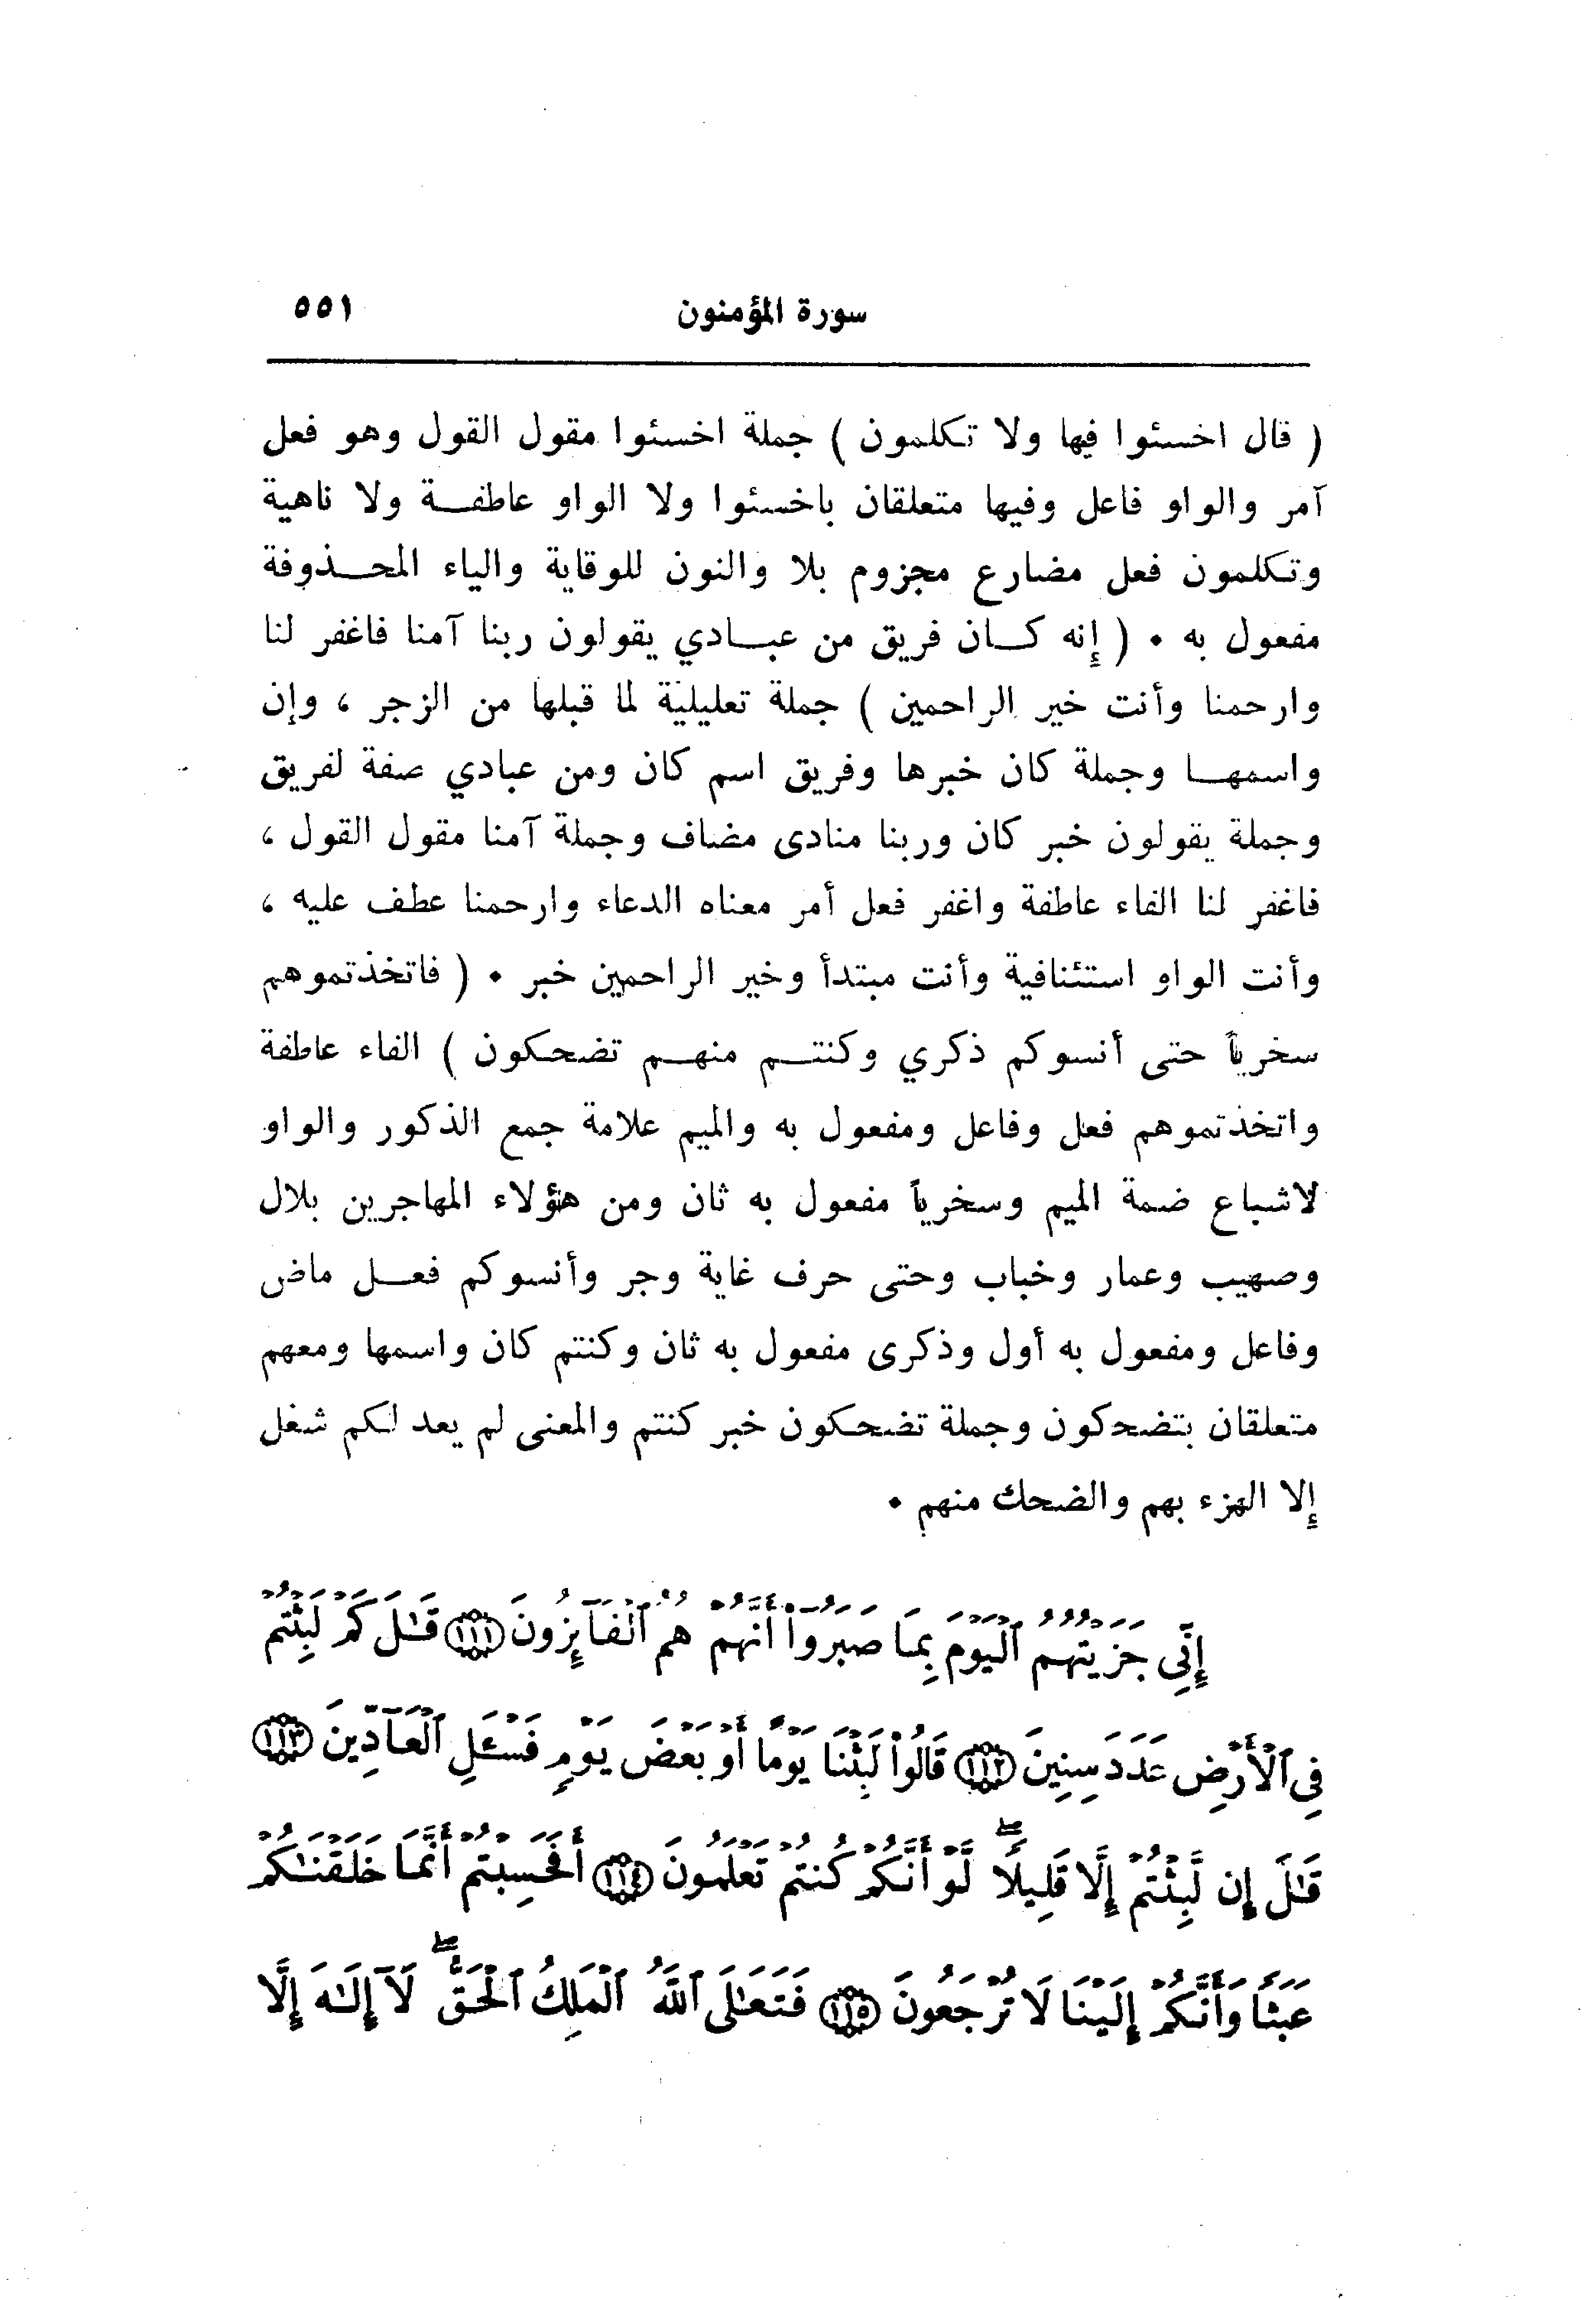 سورة المؤمنون ٥٥١
( قال اخسئوا فيها ولا تكلمون ) جملة اخسئوا مقول القول وهو فعل
آمر والواو فاعل وفيها متعلقان باخسئوا ولا الواو عاطفة ولا ناهية
وتكلمون فعل مضارع مجزوم بلا والنون للوقاية والياء المحذوفة
مفعول به ٠ ( إنه كان فريق من عبادي يقولون ربنا آمنا فاغفر لنا
وارحمنا وأنت خير الراحمين ) جملة تعليلية لما قبلها من الزجر ، وإن
واسمها وجملة كان خبرها وفريق اسم كان ومن عبادي صفة لفريق
وجملة يقولون خبر كان وربنا منادى مضاف وجملة آمنا مقول القول ،
فاغفر لنا الفاء عاطفة واغفر فعل أمر معناه الدعاء وارحمنا عطف عليه ،
وأنت الواو استئنافية وأنت مبتدأ وخير الراحمين خبر ٠ ( فاتخذتموهم
سخرياً حتى أنسوكم ذكري وكنتم منهم تضحكون ) الفاء عاطفة
واتخذتموهم فعل وفاعل ومفعول به والميم علامة جمع الذكور والواو
لاشباع ضمة الميم وسخرياً مفعول به ثان ومن هؤلاء المهاجرين بلال
وصهيب وعمار وخباب وحتى حرف غاية وجر وأنسوكم فعل ماض
وفاعل ومفعول به أول وذكرى مفعول به ثان وكنتم كان واسمها ومعهم
متعلقان بتضحكون وجملة تضحكون خبر كنتم والمعنى لم يعد لكم شغل
إلا الهزء بهم والضحك منهم ٠
إِنِّي جَزَيْتُهُمُ ٱلْيَوْمَ بِمَا صَبَرُوٓا۟ أَنَّهُمْ هُمُ ٱلْفَآئِزُونَ ١١١ قَـٰلَ كَمْ لَبِثْتُمْ
فِي ٱلْأَرْضِ عَدَدَ سِنِينَ ١١٢ قَالُوا۟ لَبِثْنَا يَوْمًا أَوْ بَعْضَ يَوْمٍ فَسْـَٔلِ ٱلْعَآدِّينَ ١١٣
قَـٰلَ إِن لَّبِثْتُمْ إِلَّا قَلِيلًا ۖ لَّوْ أَنَّكُمْ كُنتُمْ تَعْلَمُونَ ١١٤ أَفَحَسِبْتُمْ أَنَّمَا خَلَقْنَـٰكُمْ
عَبَثًا وَأَنَّكُمْ إِلَيْنَا لَا تُرْجَعُونَ ١١٥ فَتَعَـٰلَى ٱللَّهُ ٱلْمَلِكُ ٱلْحَقُّ ۖ لَآ إِلَـٰهَ إِلَّا